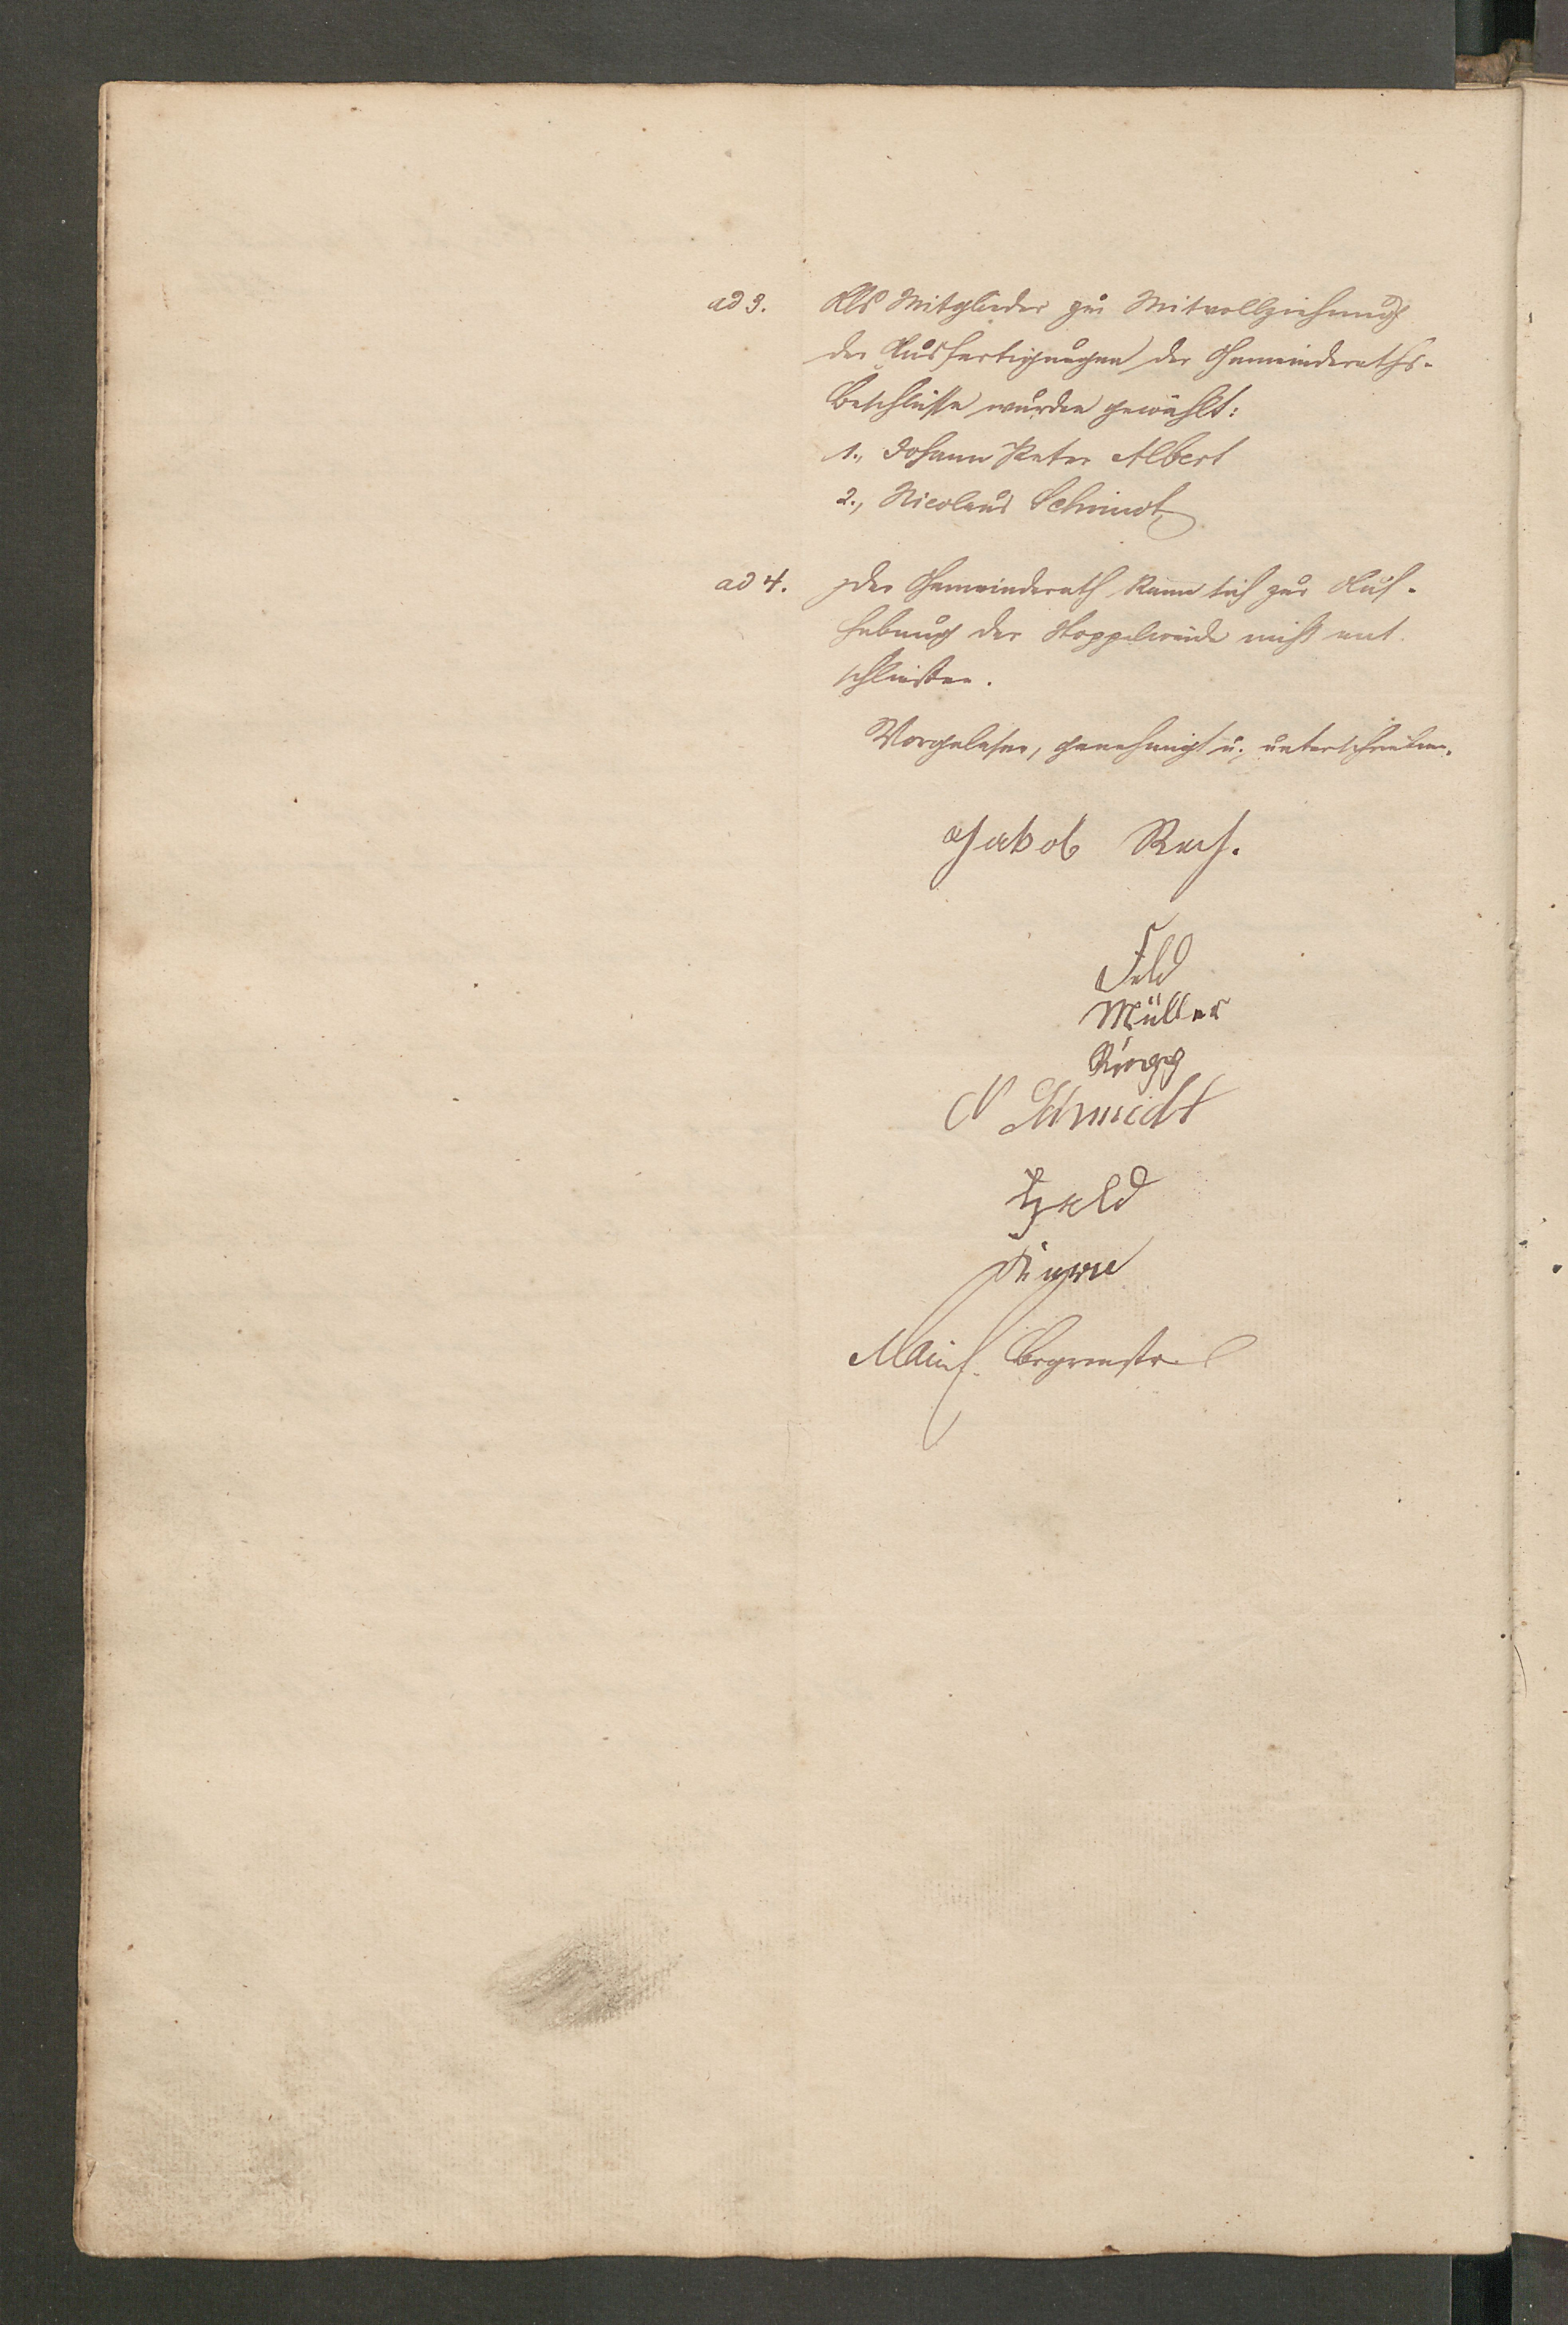 ad 3. Als Mitglieder zur Mitvollziehung
der Ausfertigungen der Gemeinderaths-
beschlüsse wurden gewählt:
1., Johann Peter Albert
2., Nicolaus Schmidt
ad 4. Der Gemeinderath kann sich zur Auf-
hebung der Stoppelweide nicht ent-
schließen.
Vorgelesen, genehmigt u. unterschrieben.
Jakob
Feld
Müller
N Schmidt